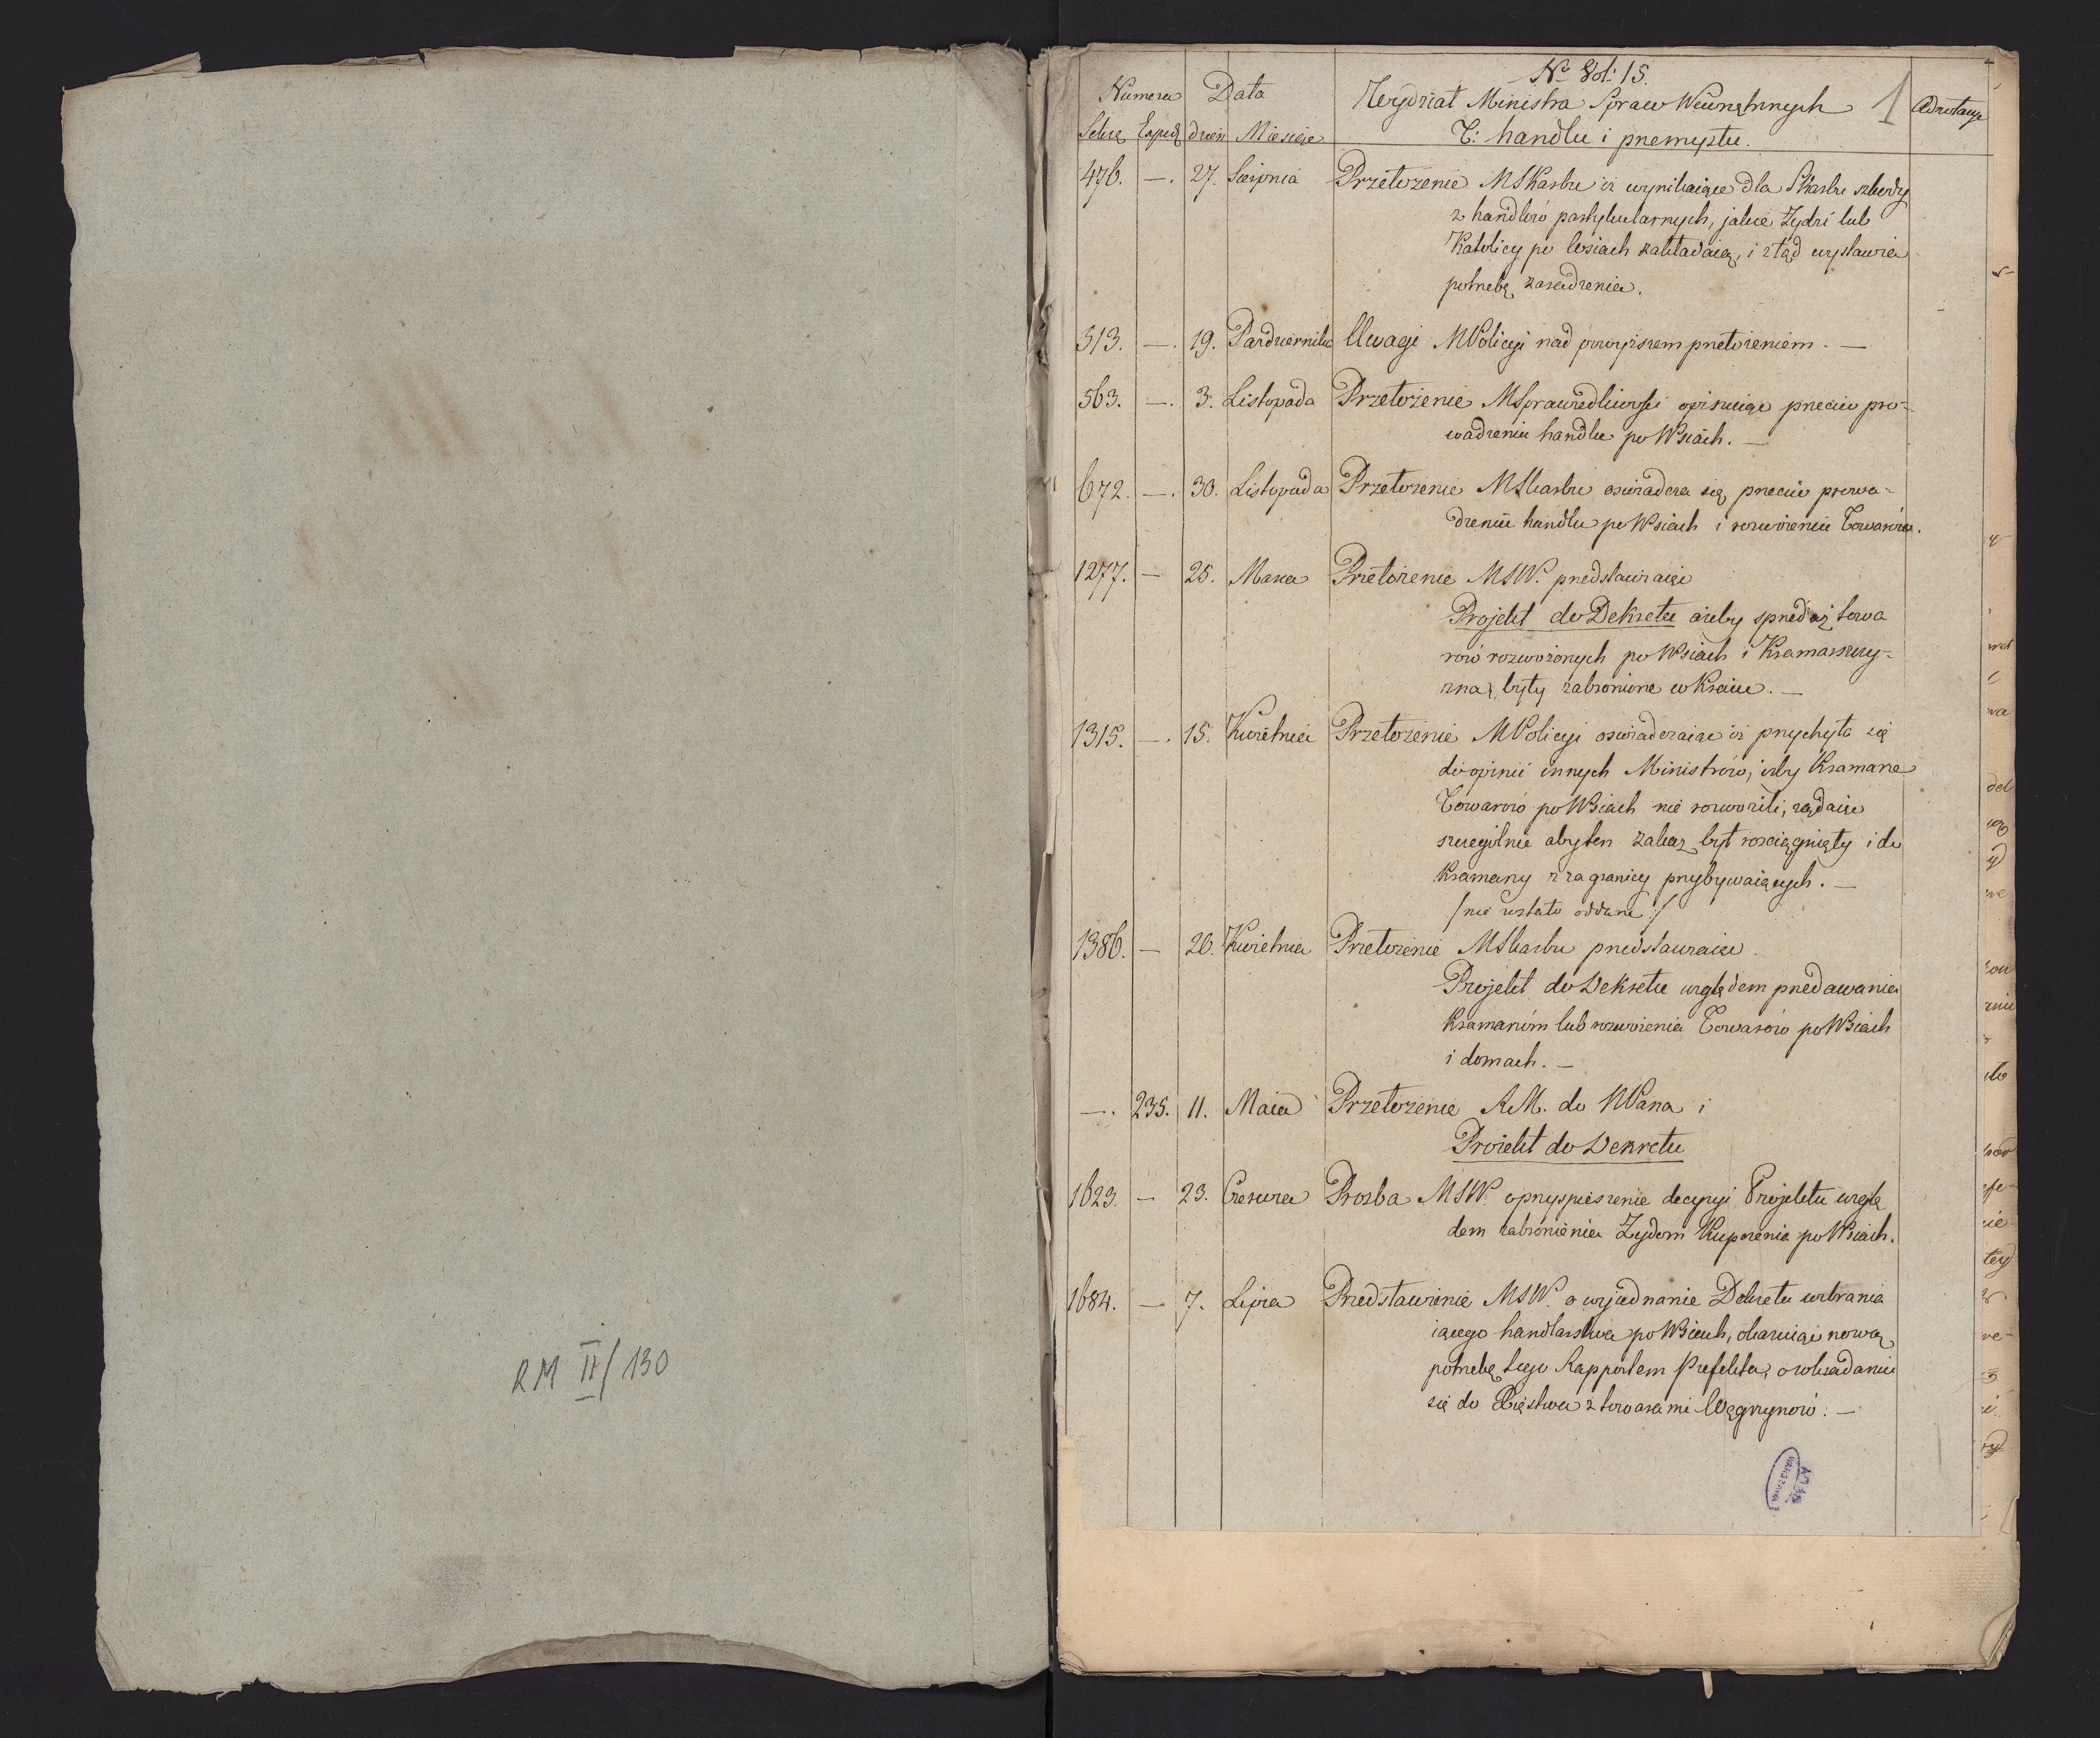 RM II/130
Nº Vol: 15.
Numera Data Wydział Ministra Spraw Wewnętrznych 1 Adnotacye
Sekre Exped dzień Miesiąc T: handlu i przemysłu.
476. —. 27. Sierpnia Przełożenie MSkarbu iż wynikaiące dla Skarbu szkody
z handlów partykularnych, jakie Żydzi lub
Katolicy po wsiach zakładaią, i ztąd wystawia
potrzebę zaradzenia.
513. —. 19. Pazdziernika Uwagi MPolicyi nad powyższem przełożeniem. —
563. —. 3. Listopada Przełożenie MSprawiedliwości opisuiące przeciw pro-
wadzeniu handlu po Wsiach. —
672. —. 30. Listopada Przełożenie MSkarbu oswiadcza się przeciw prowa-
dzeniu handlu po Wsiach i rozwożeniu Towarów.
1277. — 25. Marca Przełożenie MSW. przedstawiaiące
Projekt do Dekretu ażeby sprzedaż towa
rów rozwożonych po Wsiach i Kramarszczy-
zna, były zabronione w Kraiu. —
1315. —. 15. Kwietnia Przełożenie MPolicyi oswiadczaiące iż przychyla się
do opinii innych Ministrów, iżby Kramarze
Towarów po Wsiach nie rozwozili, żądaiąc
szczególnie aby ten zakaz był rozciągnięty i do
Kramarzy z zagranicy przybywaiących. —
/nie zostało oddane:/
1386. — 26. Kwietnia Przełożenie MSkarbu przedstawiaiące
Projekt do Dekretu względem przedawania
Kramarzom lub rozwożenia Towarów po Wsiach
i domach. —
—. 235. 11. Maia Przełożenie RM. do NPana i
Proiekt do Dekretu
1623. — 23. Czerwca Prosba MSW. o przyspieszenie decyzyi Projektu wzglę
dem zabronienia Żydom Kupczenia po Wsiach.
1684. — 7. Lipca Przedstawienie MSW. o wyjednanie Dekretu wzbrania
iącego handlarstwa po Wsiach, okazuiąc nową
potrzebę tego Rapportem Prefekta, o wkradaniu
się do Xięstwa z towarami Węgrzynów. —